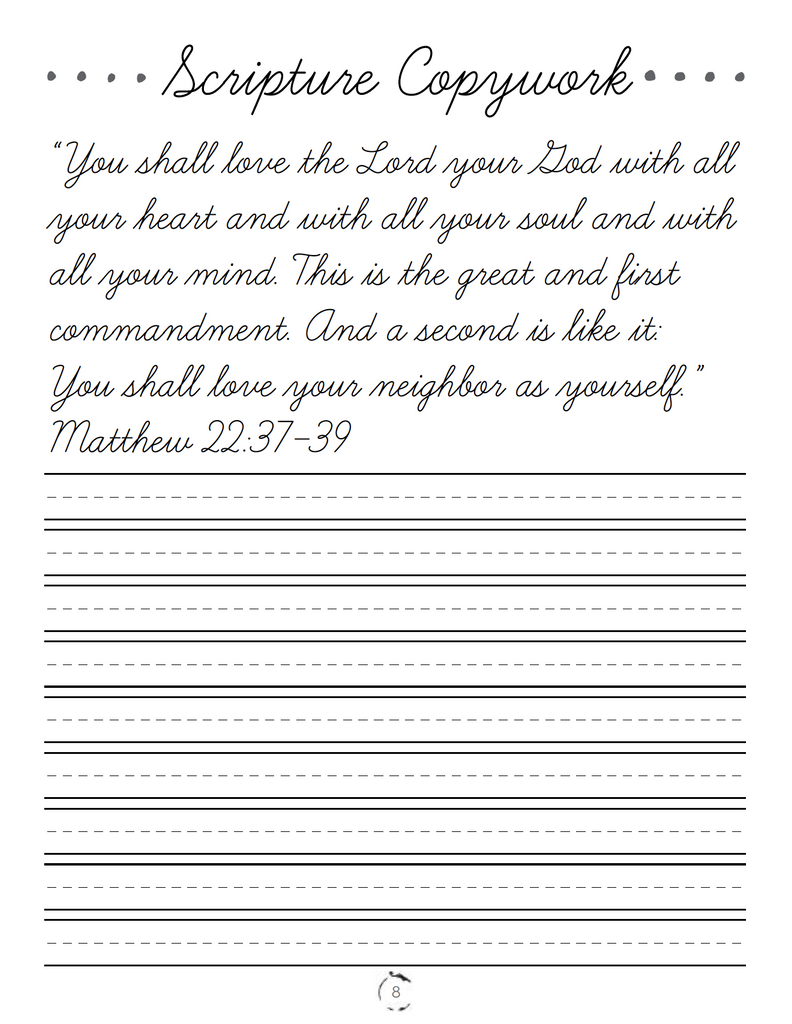 Scripture Copywork
“You shall love the Lord your God with all
your heart and with all your soul and with
all your mind. This is the great and first
commandment. And a second is like it:
You shall love your neighbor as yourself.”
Matthew 22:37-39
8